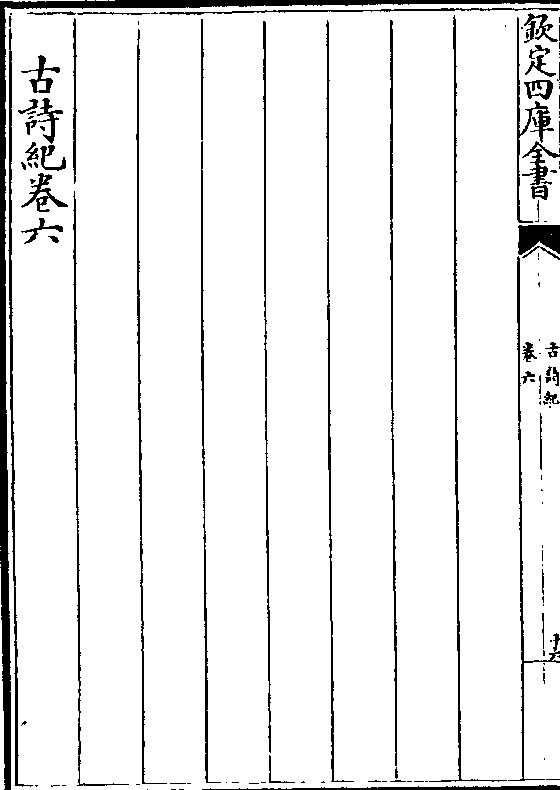 欽定四庫全書
古詩紀
卷六
古詩紀卷六